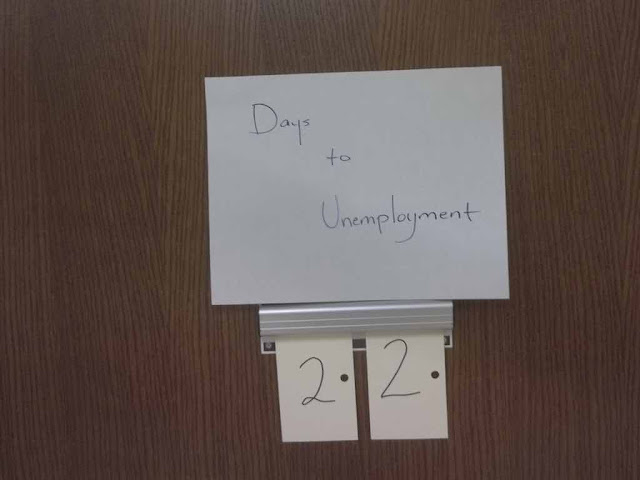 Days
to
Unemployment
2 2